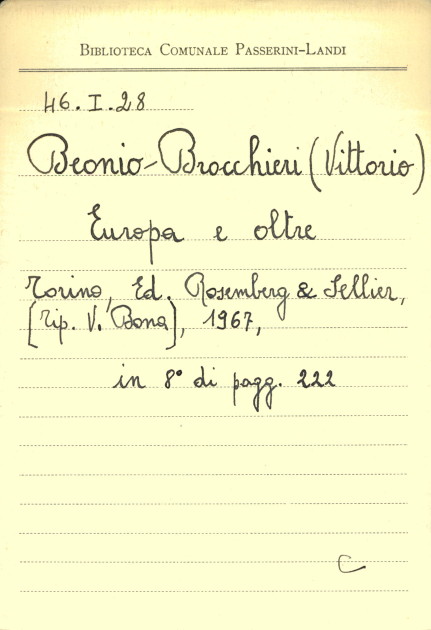 BIBLIOTECA COMUNALE PASSERINI-LANDI
46.I.28
Beonio-Brocchieri (Vittorio)
Europa e oltre
Torino, Ed. Rosemberg & Sellier,
[Tip. V. Bona], 1967,
in 8° di pagg. 222
C